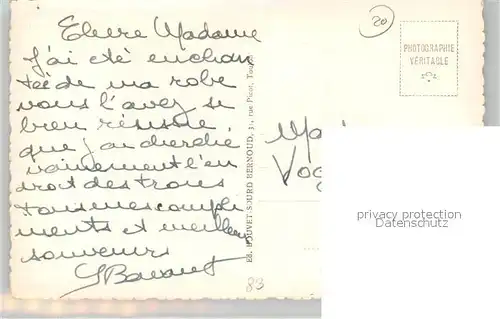 Chere Madame
J'ai été enchan
tée de ma robe
vous l'avez si
bien réussie
que j'ai cherché
vainement l'en
droit des trous
tous mes compli
ments et meilleurs
souvenirs
20
PHOTOGRAPHIE
VÉRITABLE
Ed. BOUVET-SOURD BERNOUD, 31, rue Picot, Toulon
83
privacy protection
Datenschutz